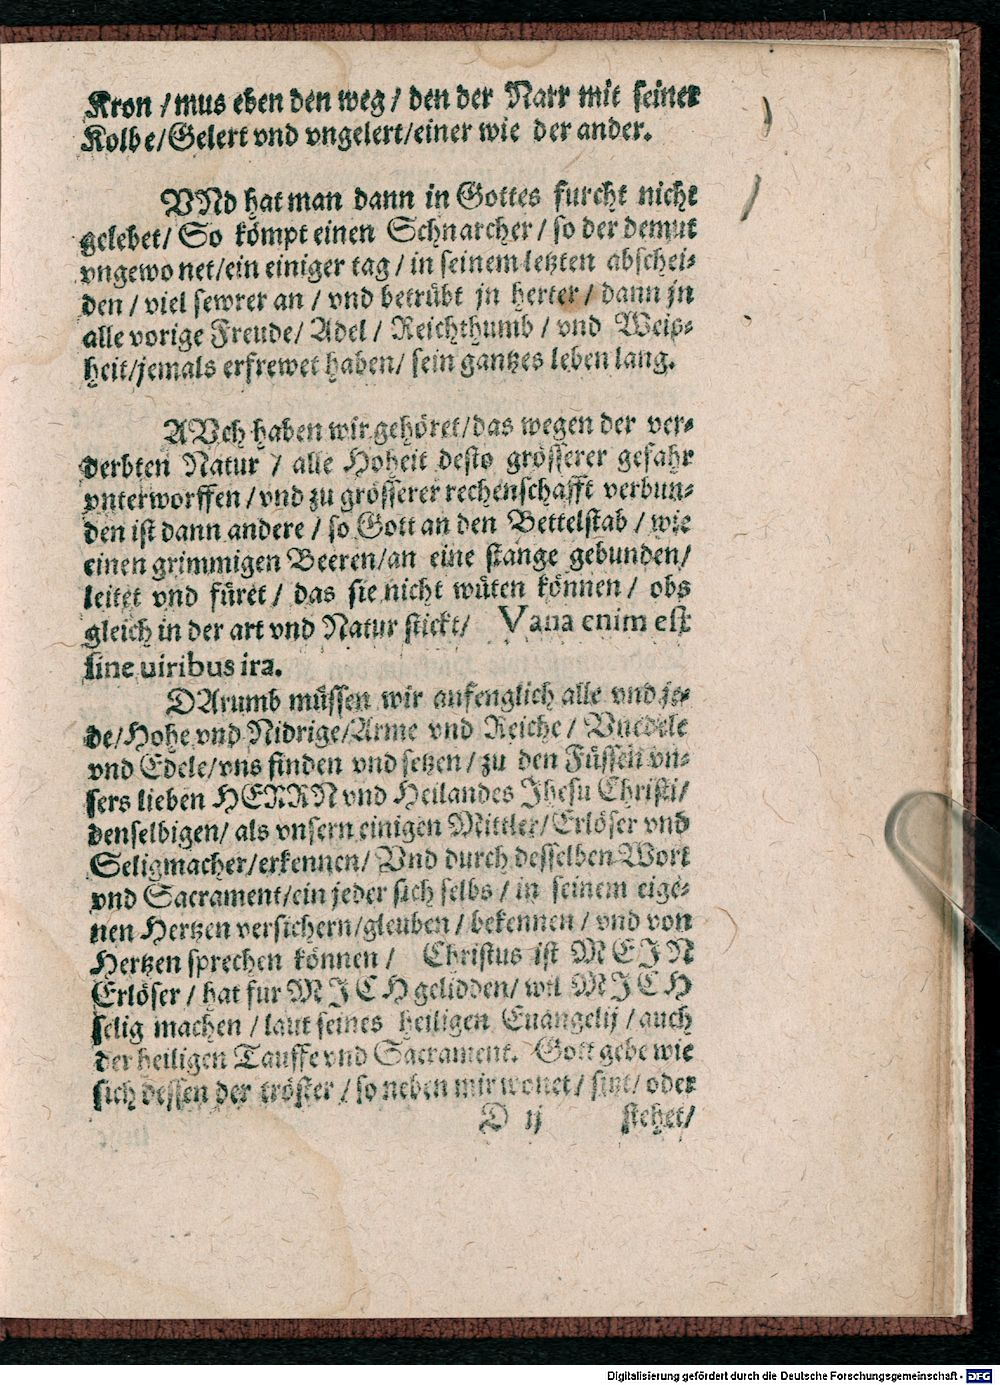 Kron /mus eben den weg/ den der Narr mit seiner
Kolbe/Gelert vnd vngelert/einer wie der ander.
VNd hat man dann in Gottes furcht nicht
gelebet/ So kömpt einen Schnarcher/ so der demut
vngewonet/ein einiger tag/ in seinem letzten abschei-
den/ viel sewrer an/ vnd betrübt jn herter/ dann jn
alle vorige Freude/ Adel/ Reichthumb/ vnd Weiß-
heit/jemals erfrewet haben/ sein gantzes leben lang.
AVch haben wir gehöret/das wegen der ver-
derbten Natur / alle Hoheit desto grösserer gefahr
vnterworffen/ vnd zu grösserer rechenschafft verbun-
den ist dann andere/ so Gott an den Bettelstab/ wie
einen grimmigen Beeren/an eine stange gebunden/
leitet vnd füret/ das sie nicht wüten können/ obs
gleich in der art vnd Natur stickt/ Vana enim est
sine uiribus ira.
DArumb müssen wir anfenglich alle vnd je-
de/Hohe vnd Nidrige/Arme vnd Reiche/ Vnedele
vnd Edele/vns finden vnd setzen/ zu den Füssen vn-
sers lieben HERRN vnd Heilandes Jhesu Christi/
denselbigen/ als vnsern einigen Mittler/Erlöser vnd
Seligmacher/erkennen/ Vnd durch desselben Wort
vnd Sacrament/ein jeder sich selbs/ in seinem eige-
nen Hertzen versichern/gleuben/ bekennen/ vnd von
Hertzen sprechen können/ Christus ist MEIN
Erlöser/ hat fur MICH gelidden/ wil MICH
selig machen/ laut seines heiligen Euangelij/ auch
der heiligen Tauffe vnd Sacrament. Gott gebe wie
sich dessen der tröster/ so neben mir wonet/ sitzt/ oder
D ij stehet/
Digitalisierung gefördert durch die Deutsche Forschungsgemeinschaft - DFG